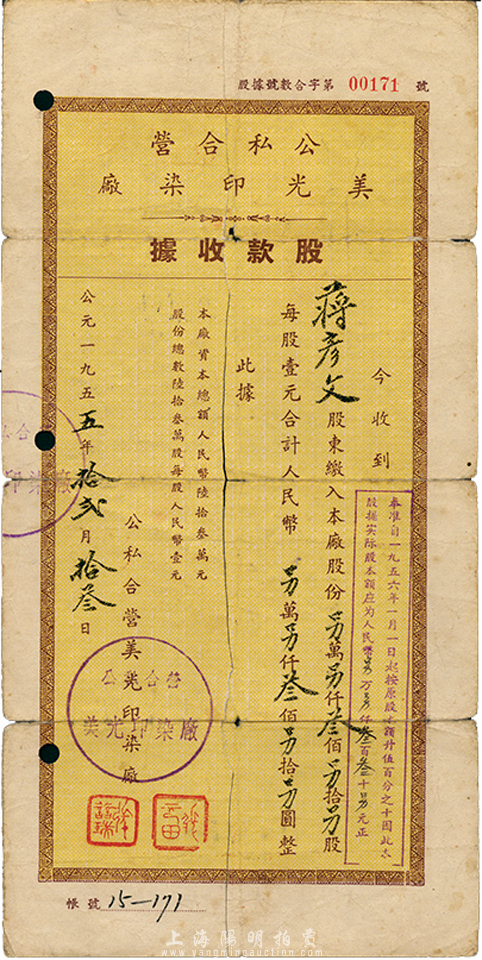 股據號數合字第 00171 號
公私合營
美光印染廠
股款收據
今收到
蔣彥文股東繳入本廠股份另萬另仟叁佰另拾另股
每股壹元合計人民幣另萬另仟叁佰另拾另圓整
此據
本廠資本總額人民幣陸拾叁萬元
股份總數陸拾叁萬股每股人民幣壹元
公私合營美光印染廠
公元一九五五年拾弍月拾叁日
奉准自一九五六年一月一日起按原股本額升值百分之十因此本
股據实际股本額应为人民幣另万另仟叁百叁十另元正
公私合營
美光印染廠
帳號 15-171
上海陽明拍賣
www.yangmingauction.com